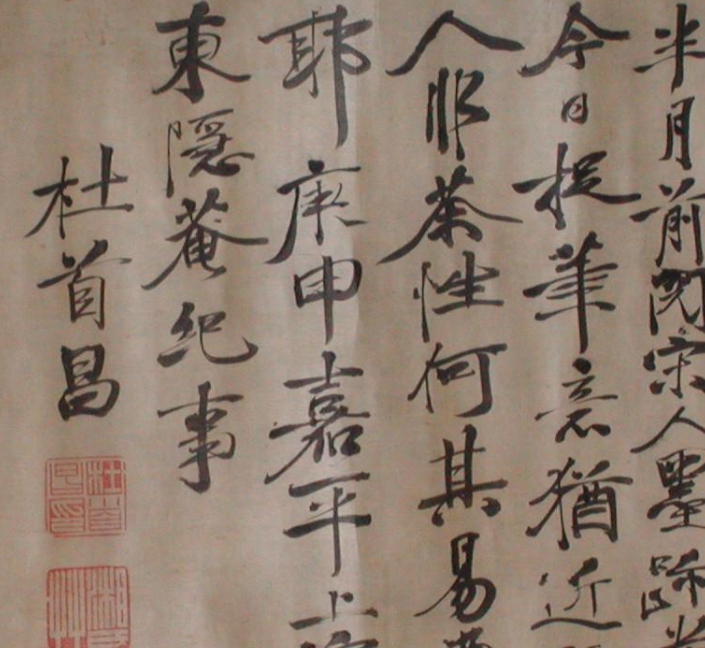 半月前閱宋人墨跡
今日捉筆意猶近
人非茶性何其易
耶庚申嘉平上
東隱菴紀事
杜首昌
杜首昌印